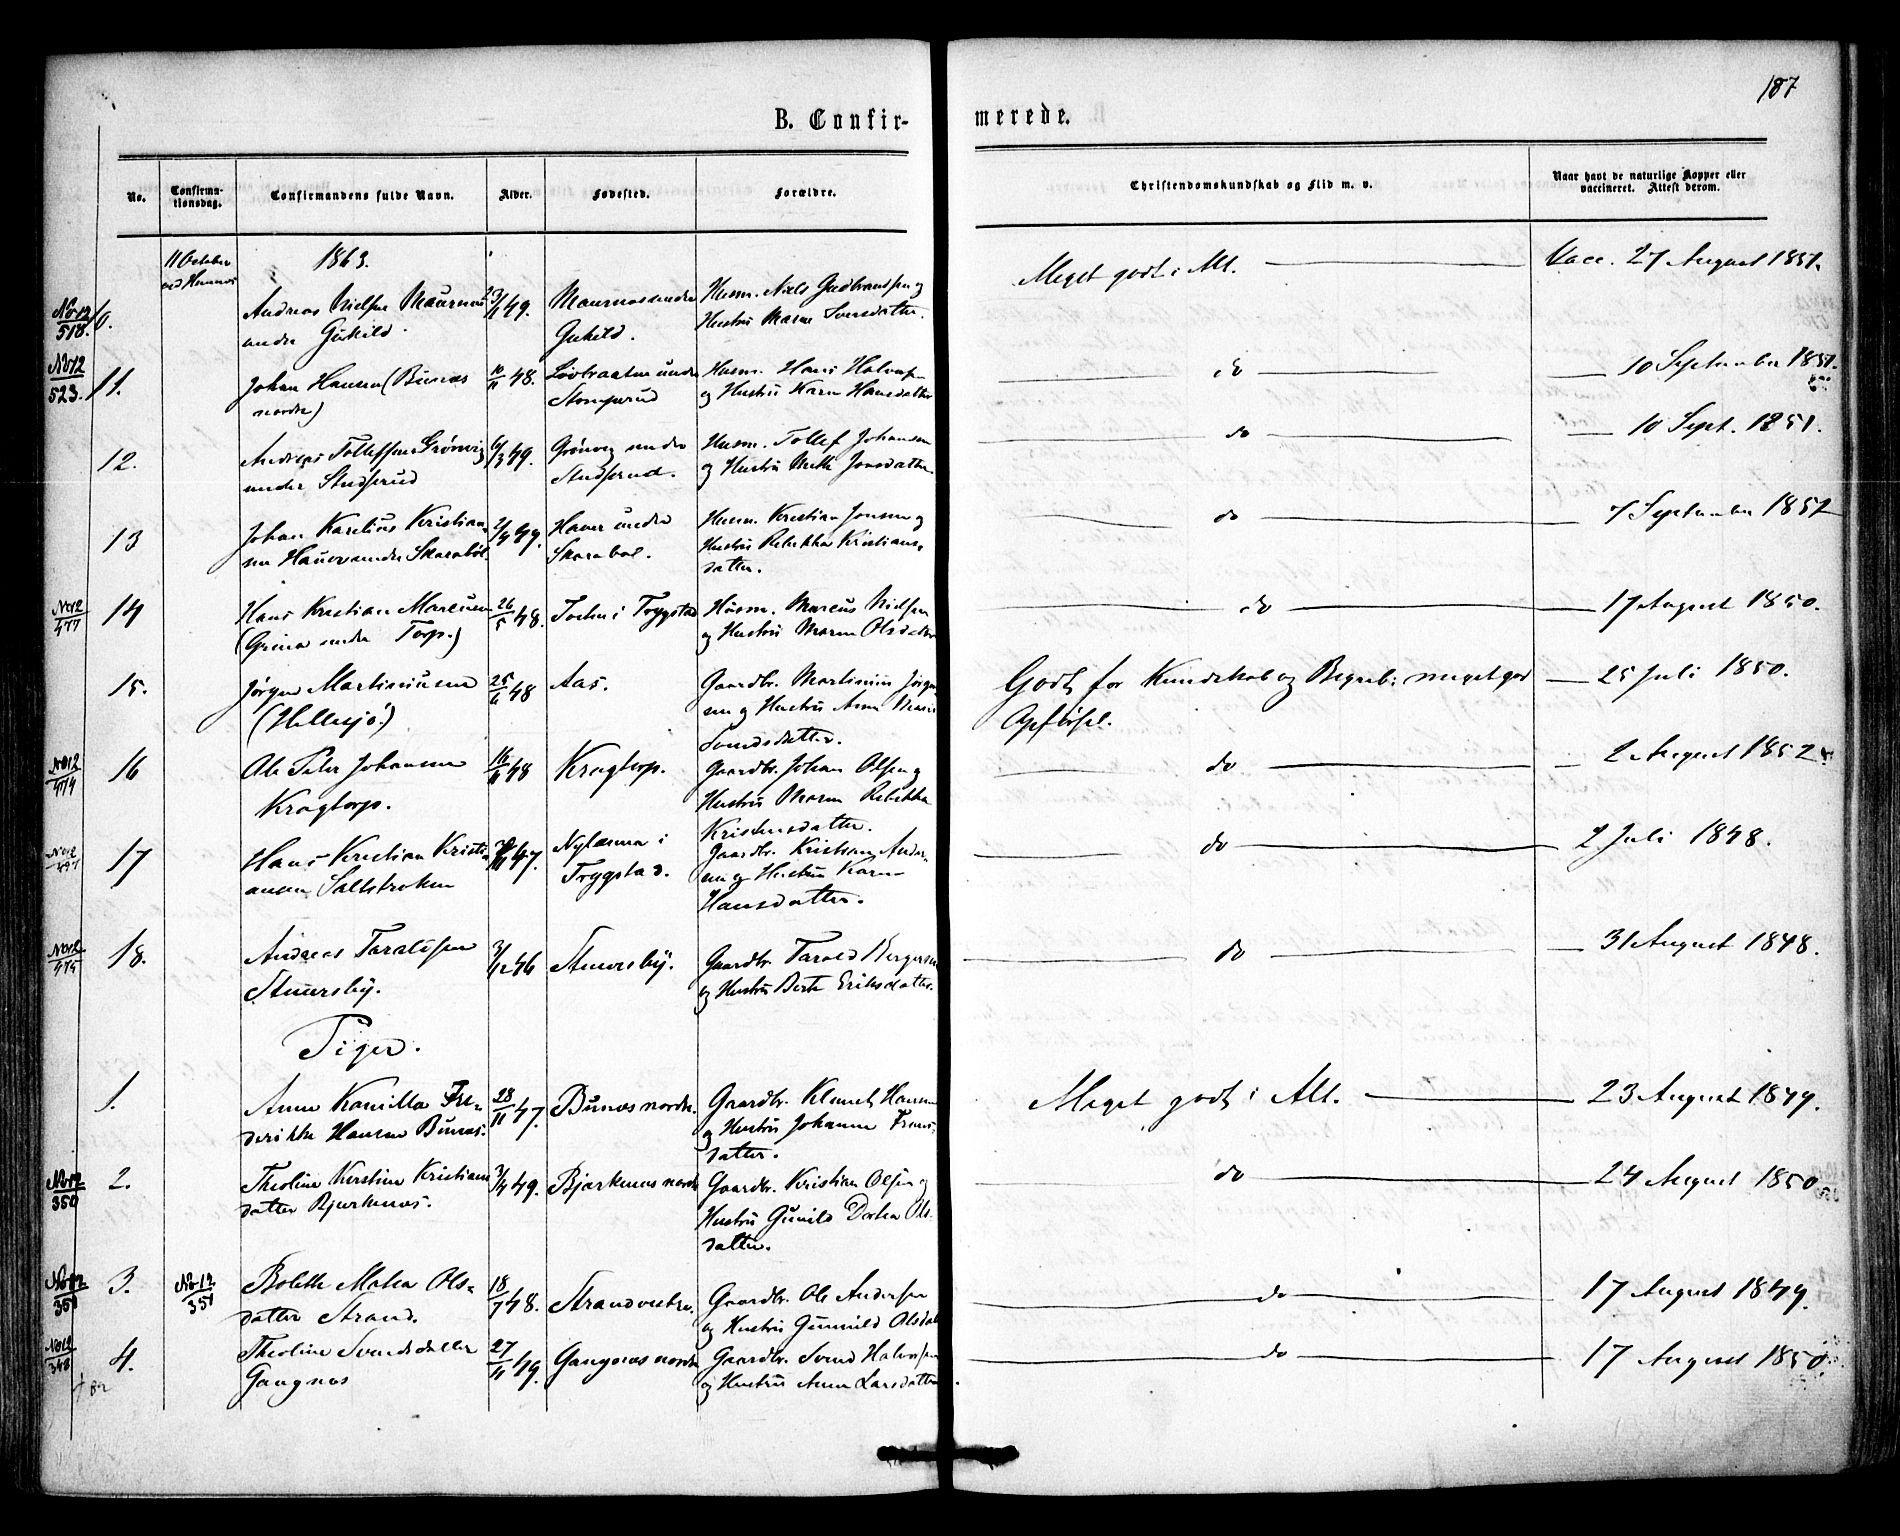 187
B. Confirmerede.
No. Confirmationsdag. Confirmandens fulde Navn. Alder. Fødested. Forældre. Christendomskundskab og Flid m. v. Naar havt de naturlige Kopper eller vaccineret. Attest derom.
11 October 1863.
No 12/518. 10. Andreas Nielsen Maurnæs 49. Maurnæs under Husm. Niels Gudbransen og Meget godt i Alt. Vacc. 27 August 1851.
under Gukild. Gukild. Hustru Maren Svensdatter.
No 12/523. 11. Johan Hansen (Bunæs 48. under Husm. Hans Halvorsen do 10 September 1851.
nordre) Stomperud og Hustru Karen Hansdatter
12. Andreas Tollefsen Grønvig 49. Grønvig under Husm. Tollef Johansen do 10 Sept. 1851.
under Studsrud Studsrud. og Hustru Mette Jonsdatter
13 Johan Karelius Kristian- 49. Haver under Husm. Kristian Jonsen og do 7 September 1852
sen Haver under Skarabøl Skarabøl. Hustru Rebekka Kristians-
datter.
No 12/477 14 Hans Kristian Marcusen 26/5 48. i Trygstad Husm. Marcus Nielsen do 17 August 1850.
(Grina under Torp.) og Hustru Maren Olsdatter
15. Jørgen Martiniusen 25/6 48 Aas. Gaardbr. Martinius Jørgen- Godt for Kundskab og Begreb; meget god 25 Juli 1850.
(Hellesjø.) sen og Hustru Anne Marie Opførsel.
Svendsdatter.
No 12/474 16 Ole Peter Johansen 48 Kragtorp. Gaardbr. Johan Olsen og do 2 August 1852.
Kragtorp. Hustru Maren Rebekka
Kristensdatter.
No 12 17 Hans Kristian Kristi- 47. i Gaardbr. Kristian Ander- do 2 Juli 1848.
ansen Saltstroken Trygstad. sen og Hustru Karen
Hansdatter.
No 12/475 18. Andreas Taraldsen 46 Stuersby. Gaardbr. Tarald Bergersen do 31 August 1848.
Stuersby. og Hustru Berte Eriksdatter.
Piger.
1. Anne Kamilla Fre- 28/11 47. Bunæs nordre. Gaardbr. Klemet Hansen Meget godt i Alt. 23 August 1849.
derikke Hansen Bunæs. og Hustru Johanne
datter.
No 12/350 2. Theoline Kirstine Kristians 49. Bjerkenæs nordre Gaardbr. Kristian Olsen og do 24 August 1850
datter Bjerkenæs. Hustru Gunild Dorthea Ols-
datter.
No 12/351 3. No 12/351 Bolette Mathea Ols- 18/7 48. Strand vestre. Gaardbr. Ole Andersen do 17 August 1849.
datter Strand. og Hustru Gunnild Olsdat
No 12/348 4. Theoline Svendsdatter 49. Gangnæs nordre Gaardbr. Svend Halvorsen do 17 August 1850
Gangnæs og Hustru Anne Larsdatter.